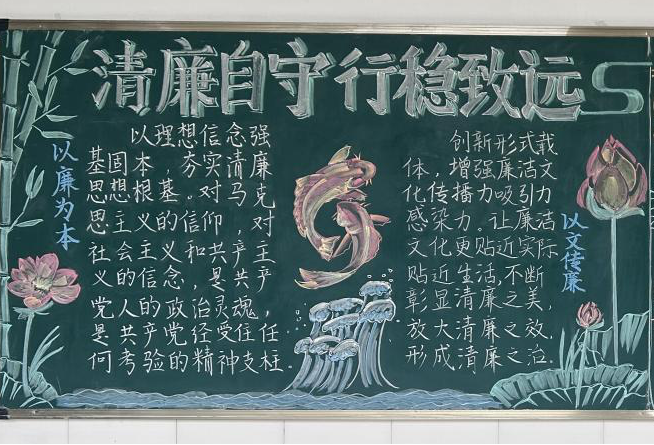 清廉自守 行稳致远
以廉为本
以理想信念强
基固本，夯实清廉
思想根基。对马克
思主义的信仰，对
社会主义和共产主
义的信念，是共产
党人的政治灵魂，
是共产党经受住任
何考验的精神支柱.
创新形式载
体，增强廉洁文
化传播力吸引力
感染力。让廉洁
文化更贴近实际
贴近生活，不断
彰显清廉之美，
放大清廉之效.
形成清廉之治.
以文传廉